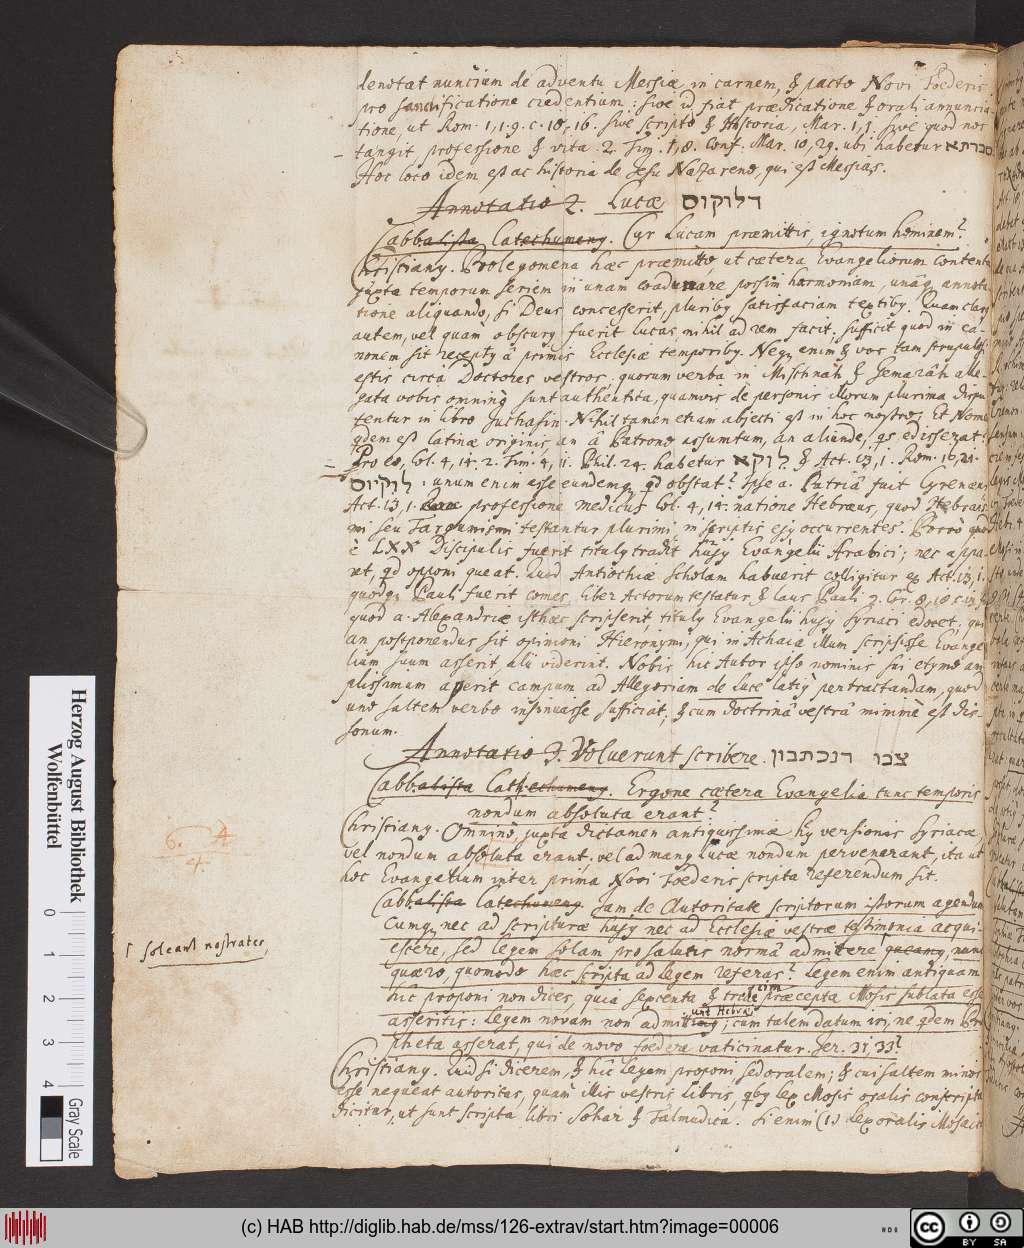 denotat nuncium de adventu Messiæ in carnem, & pacto Novi Foederis
pro sanctificatione credentium: sive id fiat prædicatione & orali annuncia-
tione, ut Rom. 1,1.9. c. 10,16. sive scripto & Historia, Mar. 1,1. sive quod nos
tangit, professione & vita. 2. Tim. 1,8. Conf. Mar. 10,29. ubi habetur סברתא
Hoc loco idem est ac historia de Jesu Nazareno, qui est Messias.
Annotatio 2. Lucæ דלוקוס
Cabbalista Catechumeng. Cur Lucam præmittis, ignotum hominem?
Christiang. Prolegomena hæc præmitto, ut cætera Evangeliorum contenta
juxta temporum seriem in unam coadunare possim harmoniam, unâq annota-
tione aliquando, si Deus concesserit, pluribg satisfaciam textibg. Quam clarg
autem, vel quam obscurg fuerit Lucas, nihil ad rem facit, sufficit quod in ca-
nonem sit receptg â primis Ecclesiæ temporibg. Neqg enim & vos tam scrupulosi
estis circa Doctores vestros, quorum verba in Mischnah & Gemarâh alle-
gata vobis omninò sunt authentica, quamvis de personis illorum plurima dispu-
tentur in libro Juchasin. Nihil tamen etiam abjecti est in hoc nostro; Et Nomen
qdem est latinæ originis, an â Patrono assumtum, an aliunde, qs edisserat?
Pro eo, Col. 4,14. 2. Tim. 4,11. Phil. 24. habetur לוקא & Act. 13,1. Rom. 16,21.
לוקיוס: unum enim esse eundemqg qd obstat? Ipse a. Patriâ fuit Cyrenæus
Act. 13,1. professione medicus Col. 4,14. natione Hebræus, quod Hebrais-
mi seu Targumismi testantur plurimi in scriptis ejg occurrentes. Porrò quod
è LXX Discipulis fuerit titulg tradit hujg Evangelii Arabici; nec appa-
ret, qd opponi queat. Quod Antiochiæ scholam habuerit colligitur ex Act. 13,1.
quodqg Pauli fuerit comes, liber Actorum testatur & laus Pauli 2. Cor. 8,18.
quod a. Alexandriæ isthæc scripserit, titulg Evangelii hujg Syriaci edocet; qui
an postponendus sit opinioni Hieronymi, qui in Achaia illum scripsisse Evange-
lium suum asserit, alii viderint. Nobis hic Autor ipso nominis sui etymo am-
plissimum aperit campum ad Allegoriam de Luce latig pertractandam, quod
uno saltem verbo insinuasse sufficiat, & cum doctrinâ vestrâ minimè est dis-
sonum.
Annotatio 3. Voluerunt scribere. צבו דנכתבון
Cabbalista Cathechumeng. Ergone cætera Evangelia tunc temporis
nondum absoluta erant?
Christiang. Omninò, juxta dictamen antiquissimæ hg versionis Syriacæ,
vel nondum absoluta erant, vel ad mang Lucæ nondum pervenerant, ita ut
hoc Evangelium inter prima Novi Foederis scripta referendum sit.
Cabbalista Catechumeng. Jam de Autoritate scriptorum istorum agendum
Cumqg nec ad scripturæ hujg nec ad Ecclesiæ vestræ testimonia acqui-
escere, sed legem solam pro salutis normâ admittere, nunc
quæro, quomodo hæc scripta ad legem referas? Legem enim antiquam
hîc proponi non dices, quia sexcenta & tredecim præcepta Mosis sublata esse
asseritis: Legem novam non admittunt Hebræi; cum talem datum iri, ne qdem Pro-
pheta asserat, qui de novo foedere vaticinatur. Jer. 31,33?
Christiang. Quid si dicerem, & hîc legem proponi sed oralem; & cui saltem minor
esse nequeat autoritas, quam illis vestris libris, qbg lex Mosis oralis conscripta
dicitur, ut sunt scripta libri Sohar & Talmudica. Si enim (1.) lex oralis Mosaica
6. A
4.
⌈ soleant nostrates
Herzog August Bibliothek
Wolfenbüttel
0 1 2 3 4
Gray Scale
(c) HAB http://diglib.hab.de/mss/126-extrav/start.htm?image=00006
HAB
cc BY SA